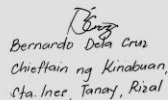 Bernardo Dela Cruz
Chieftain ng Kinabuan,
Sta. Inez, Tanay, Rizal